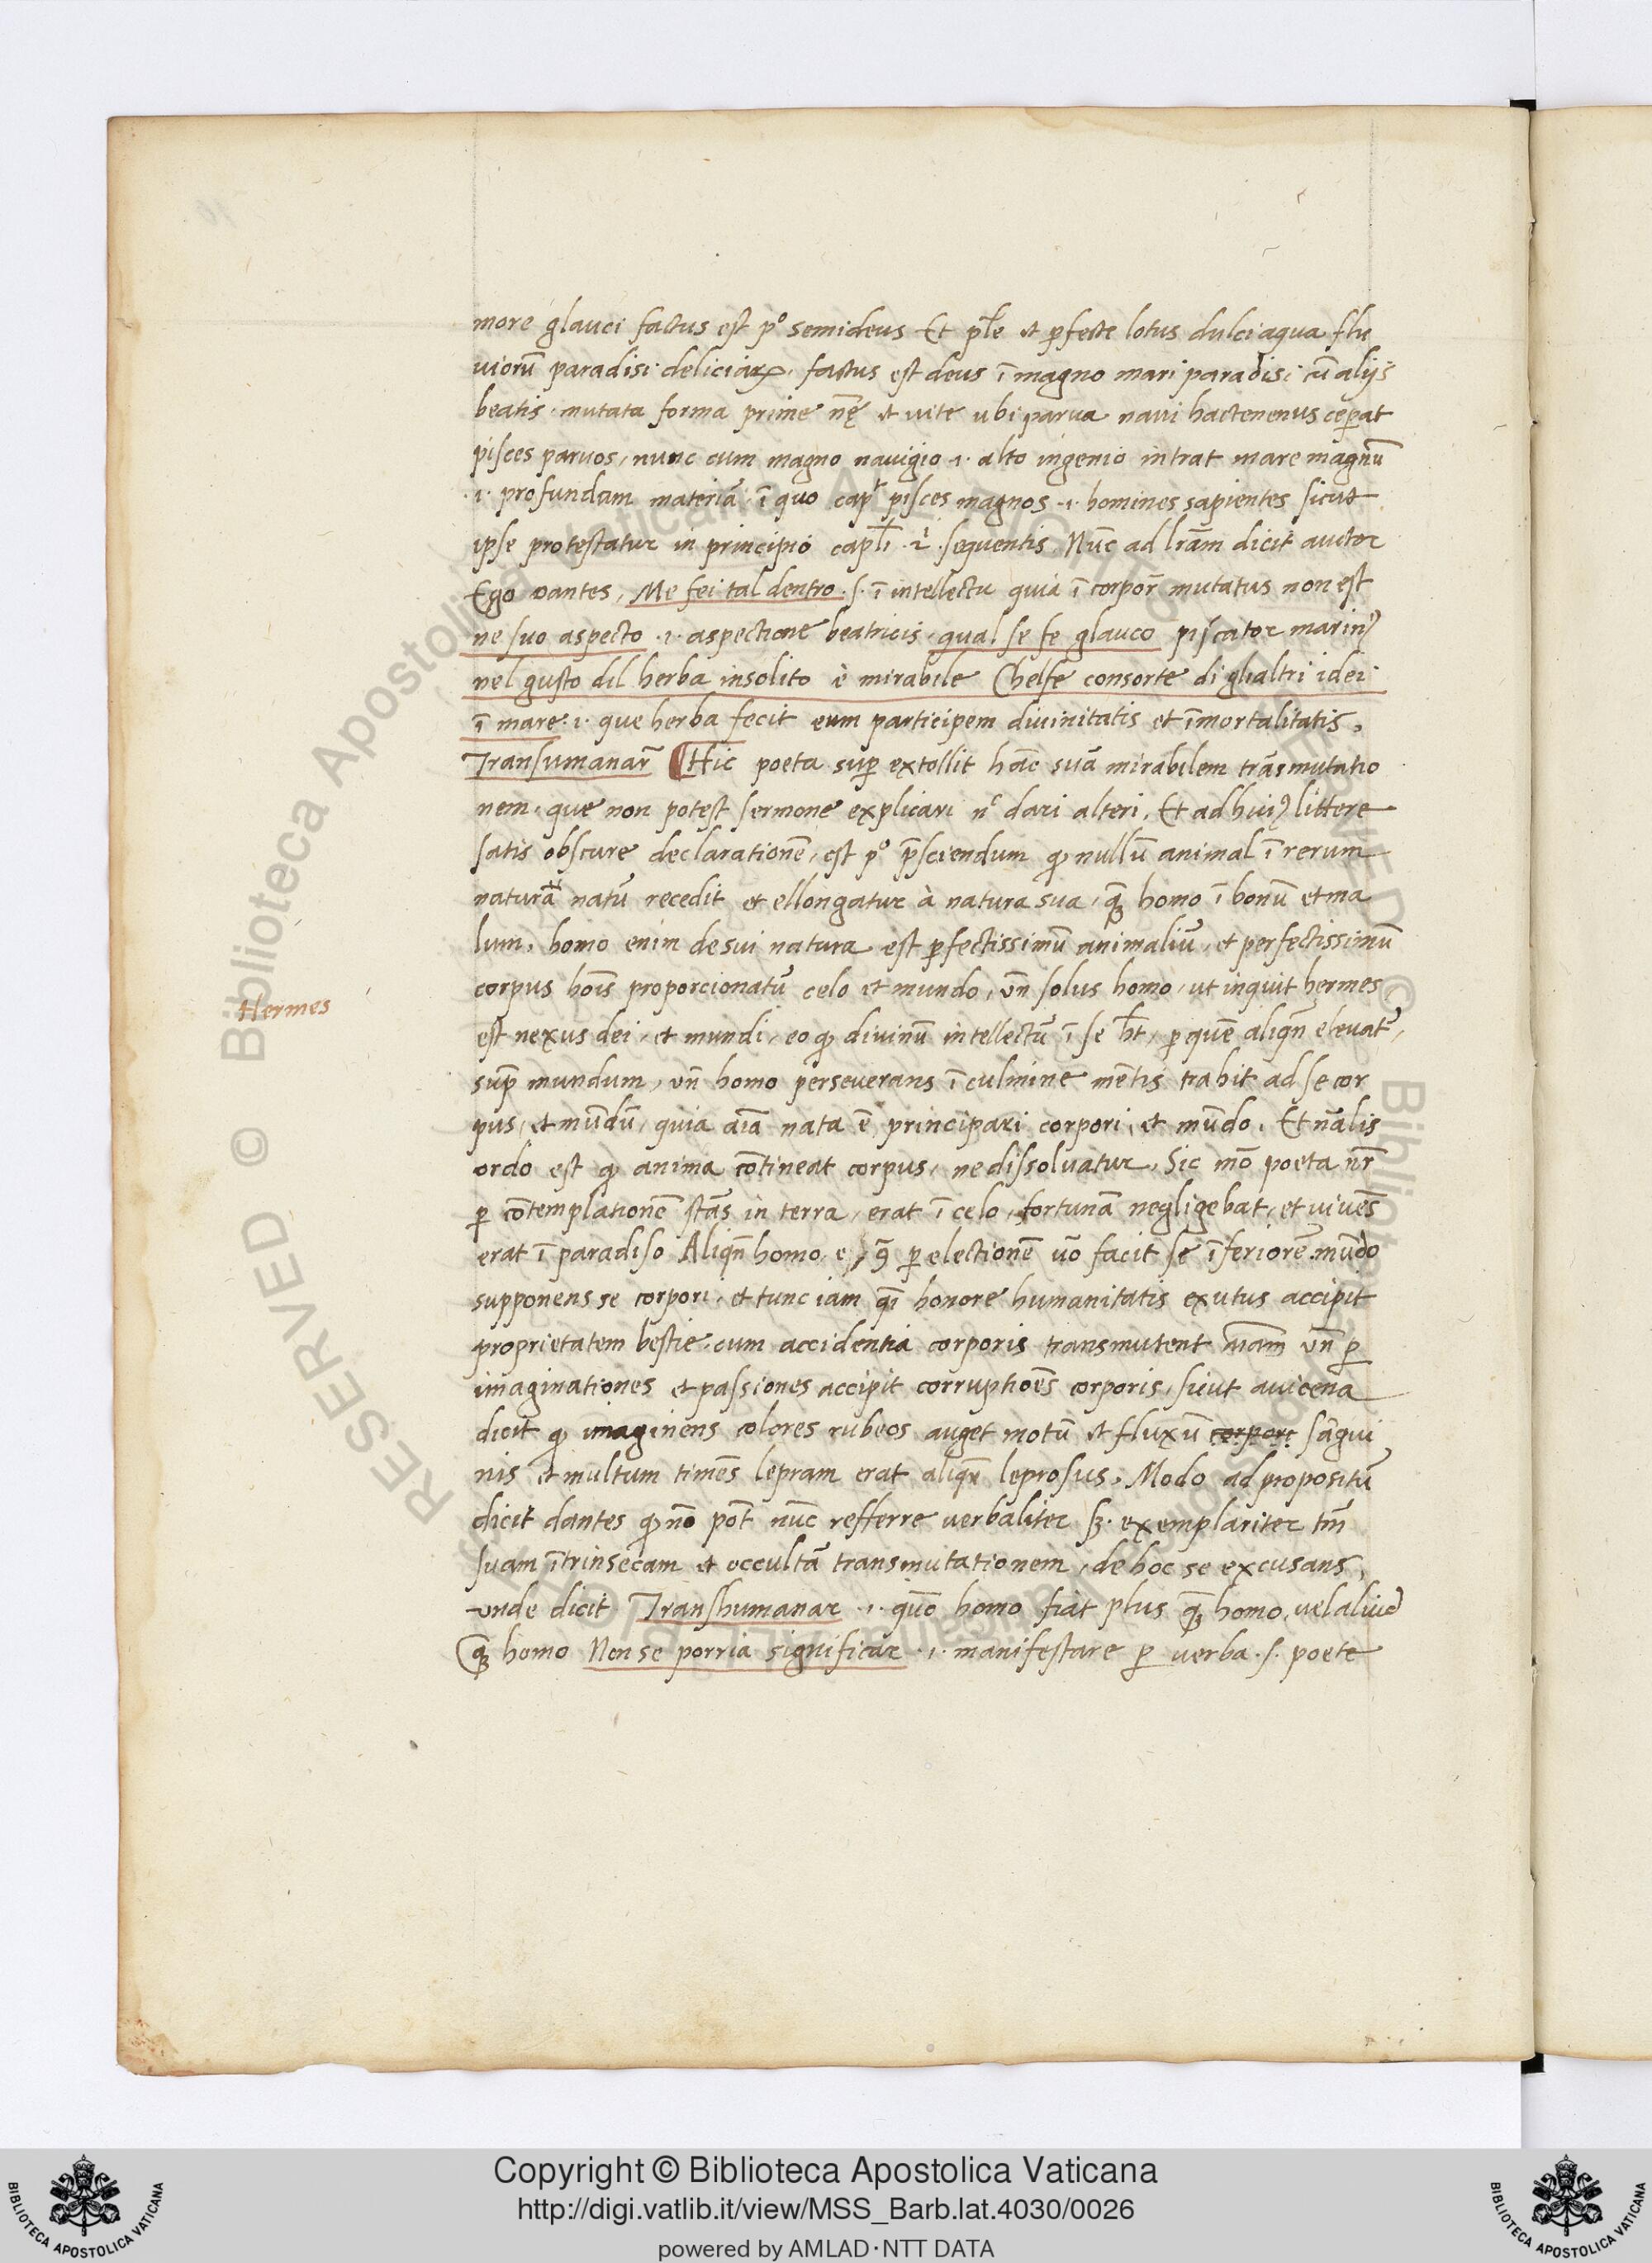 more glauci factus est p° semideus Et pl̄e et ꝑfecte lotus dulci aqua flu
uiorū paradisi deliciaꝝ. factus est deus ī magno mari paradisi cū alijs
beatis. mutata forma prime nr̄ę et uite ubi parua naui hactenenus cep̄at
pisces paruos, nunc cum magno nauigio .i. alto ingenio intrat mare magnū
.i. profundam materiā. ī quo cap^t pisces magnos .i. homines sapientes sicut
ipse protestatur in principio capl̄i .2^i. sequentis. Nūc ad lr̄am dicit auctor
Ego dantes, Me fei tal dentro .s. ī intellectu quia ī corpor̄ mutatus non est
ne suo aspecto .i. aspectione beatricis. qual se fe glauco piscator marinꝰ
nel gusto dil herba insolito è mirabile Chelfe consorte di glialtri idei
ī mare .i. que herba fecit eum participem diuinitatis et īmortalitatis.
Transumanar̄ Hic poeta suꝑ extollit hāc suā mirabilem trāsmutatio
nem. que non potest sermone explicari n^c dari alteri. Et ad huiꝰ littere
satis obscure declarationē, est p° p̄sciendum ꝙ nullū animal ī rerum
naturā natū recedit et ellongatur à natura sua, qꝫ̄ homo ī bonū et ma
lum. homo enim de sui natura est ꝑfectissimū animaliū, et perfectissimū
corpus hoīs proporcionatū celo et mundo, vn̄ solus homo, ut inquit hermes
Hermes
est nexus dei, et mundi, eo ꝙ diuinū intellectū ī se h̄t, ꝑ quē aliqn̄ eleuat^r,
suꝑ mundum, vn̄ homo perseuerans ī culmine mētis trahit ad se cor
pus, et mūdū, quia aīa nata ē principari corpori, et mūdo. Et nālis
ordo est ꝙ anima cōtineat corpus, ne dissoluatur. Sic mō poeta nr̄
ꝑ cōtemplationē stās in terra, erat ī celo, fortunā negligebat, et uiuēs
erat ī paradiso Aliqn̄ homo ꝑ electionē uō facit se īferiorē mūdo
supponens se corpori. et tunc iam q̄i honore humanitatis exutus accipit
proprietatem bestie. cum accidentia corporis transmutent aīam vn̄ ꝑ
imaginationes et passiones accipit corruptiōes corporis, sicut auicena
dicit ꝙ imaginens colores rubeos auget motū et fluxū corpori sāgui
nis et multum timēs lepram erat aliqn̄ leprosus. Modo ad propositū
dicit dantes ꝙ nō pōt nūc refferre uerbaliter sꝫ. exemplariter tm̄
suam ītrinsecam et occultā transmutationem, de hoc se excusans,
unde dicit Transhumanar .i. quō homo fiat plus qꝫ̄ homo, uel aliud
qꝫ̄ homo Non se porria significar .i. manifestare ꝑ uerba .s. poete
Copyright © Biblioteca Apostolica Vaticana
http://digi.vatlib.it/view/MSS_Barb.lat.4030/0026
powered by AMLAD·NTT DATA
BIBLIOTECA APOSTOLICA VATICANA
BIBLIOTECA APOSTOLICA VATICANA